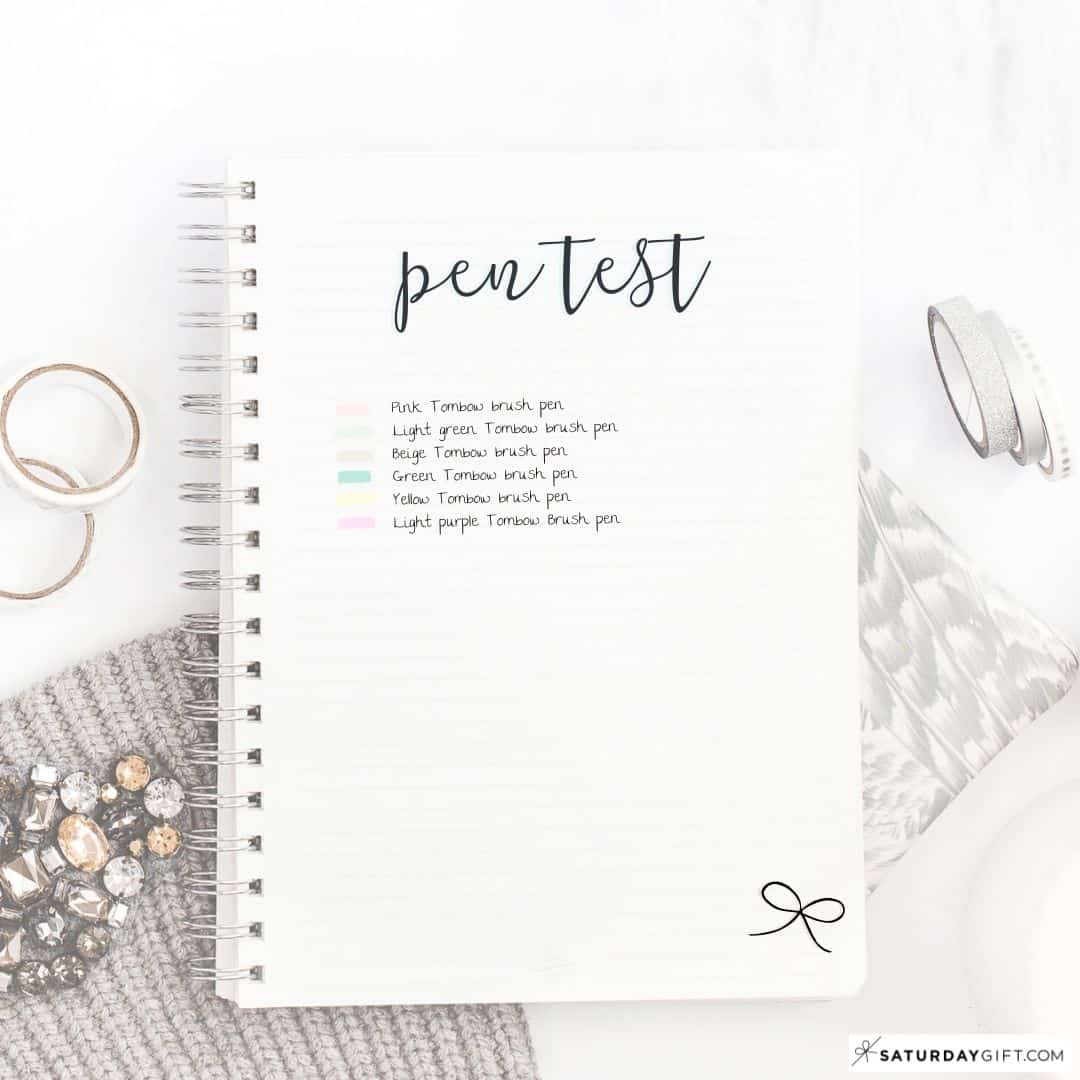 pen test
Pink Tombow brush pen
Light green Tombow brush pen
Beige Tombow brush pen
Green Tombow brush pen
Yellow Tombow brush pen
Light purple Tombow Brush pen
SATURDAYGIFT.COM